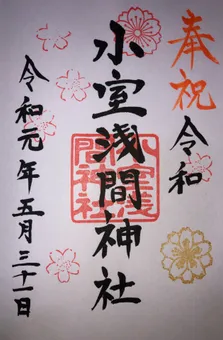 奉祝
令和
小室浅間神社
小室浅
間神社
令和元年五月三十一日